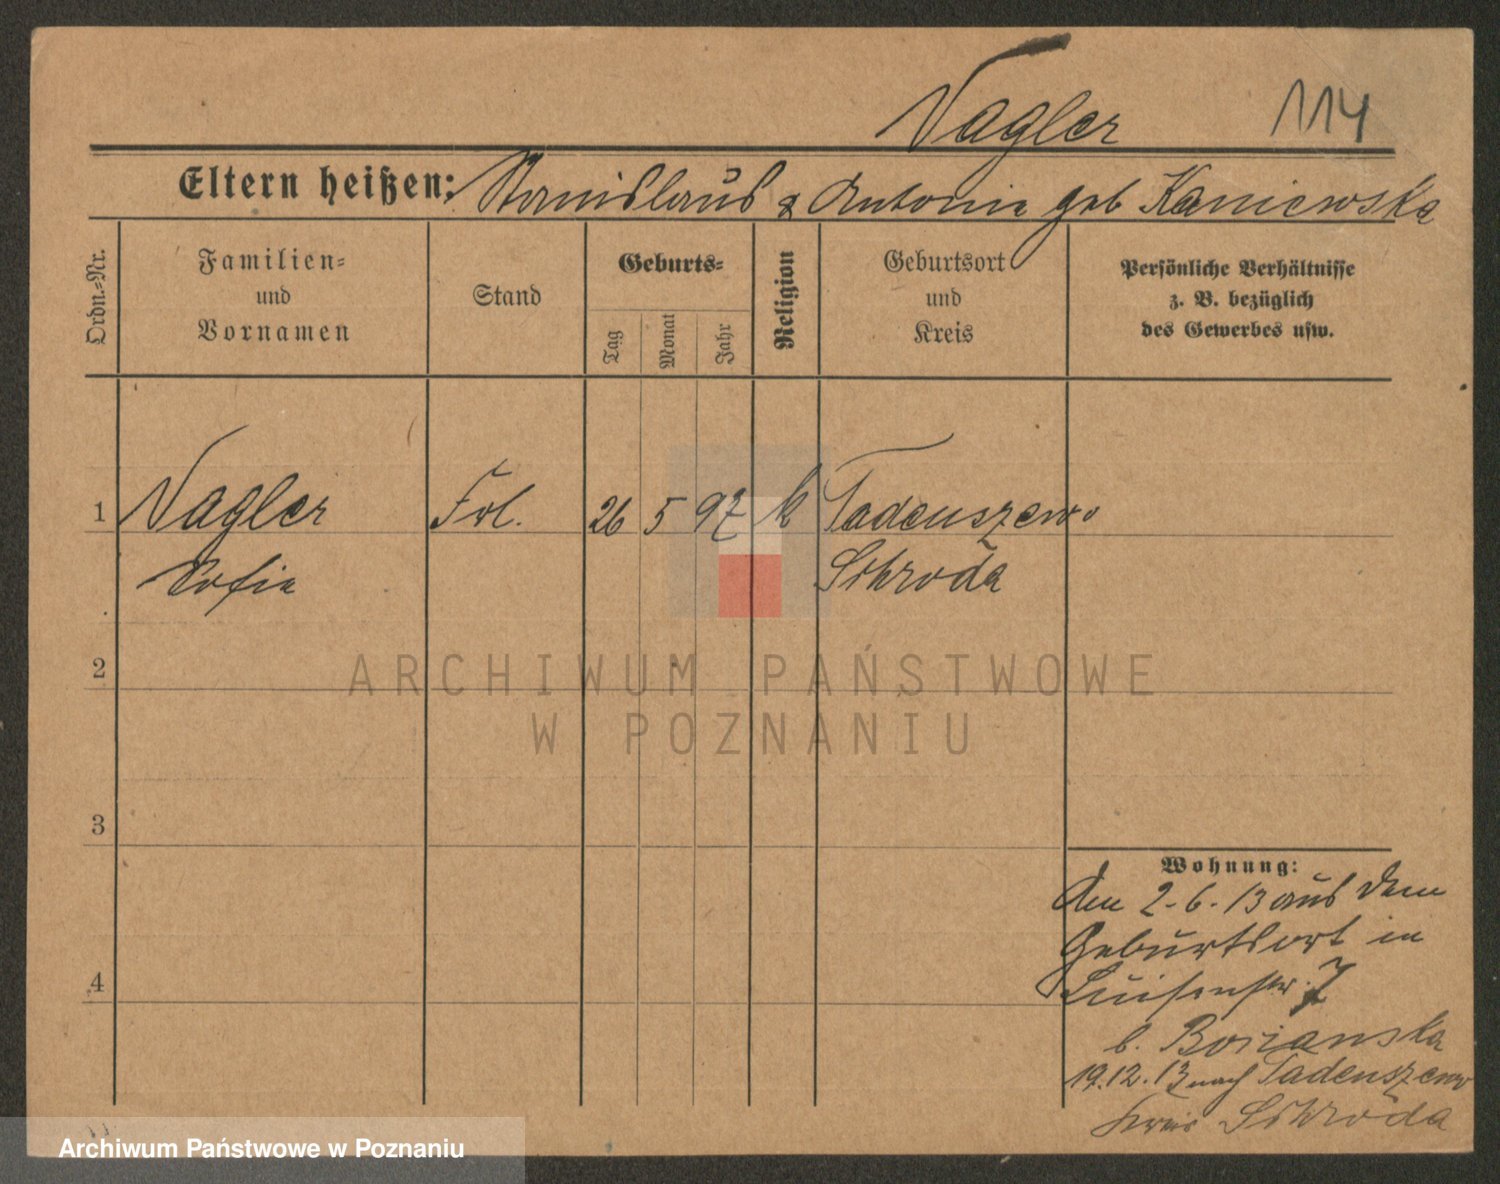 Nagler 114
Eltern heißen: Stanislaus & Antonie geb Kaniewska
Ordn.-Nr.
Familien-
und
Vornamen
Stand
Geburts-
Tag
Monat
Jahr
Religion
Geburtsort
und
Kreis
Persönliche Verhältnisse
z. B. bezüglich
des Gewerbes usw.
1 Nagler Frl. 26 5 97 k Tadeuszewo
Sofie Schroda
2
3
4
Wohnung:
den 2-6-13 aus dem
Geburtsort in
Luisenstr. 7
b.
19.12.13 nach Tadeuszewo
Kreis Schroda
ARCHIWUM PAŃSTWOWE
W POZNANIU
Archiwum Państwowe w Poznaniu